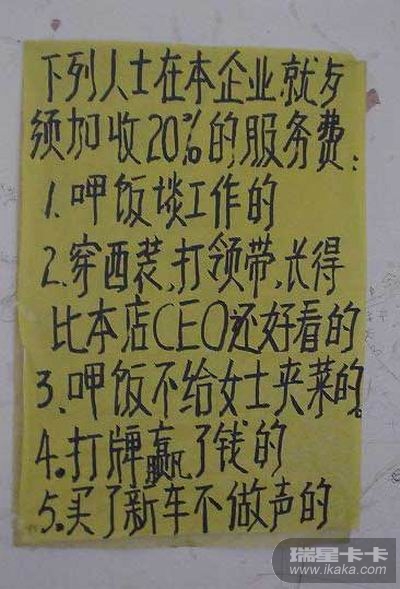 下列人士在本企业就歺
须加收20%的服务费:
1.呷饭谈工作的
2.穿西装,打领带,长得
比本店CEO还好看的
3、呷饭不给女士夹菜的。
4.打牌赢了钱的
5.买了新车不做声的
瑞星卡卡
www.ikaka.com